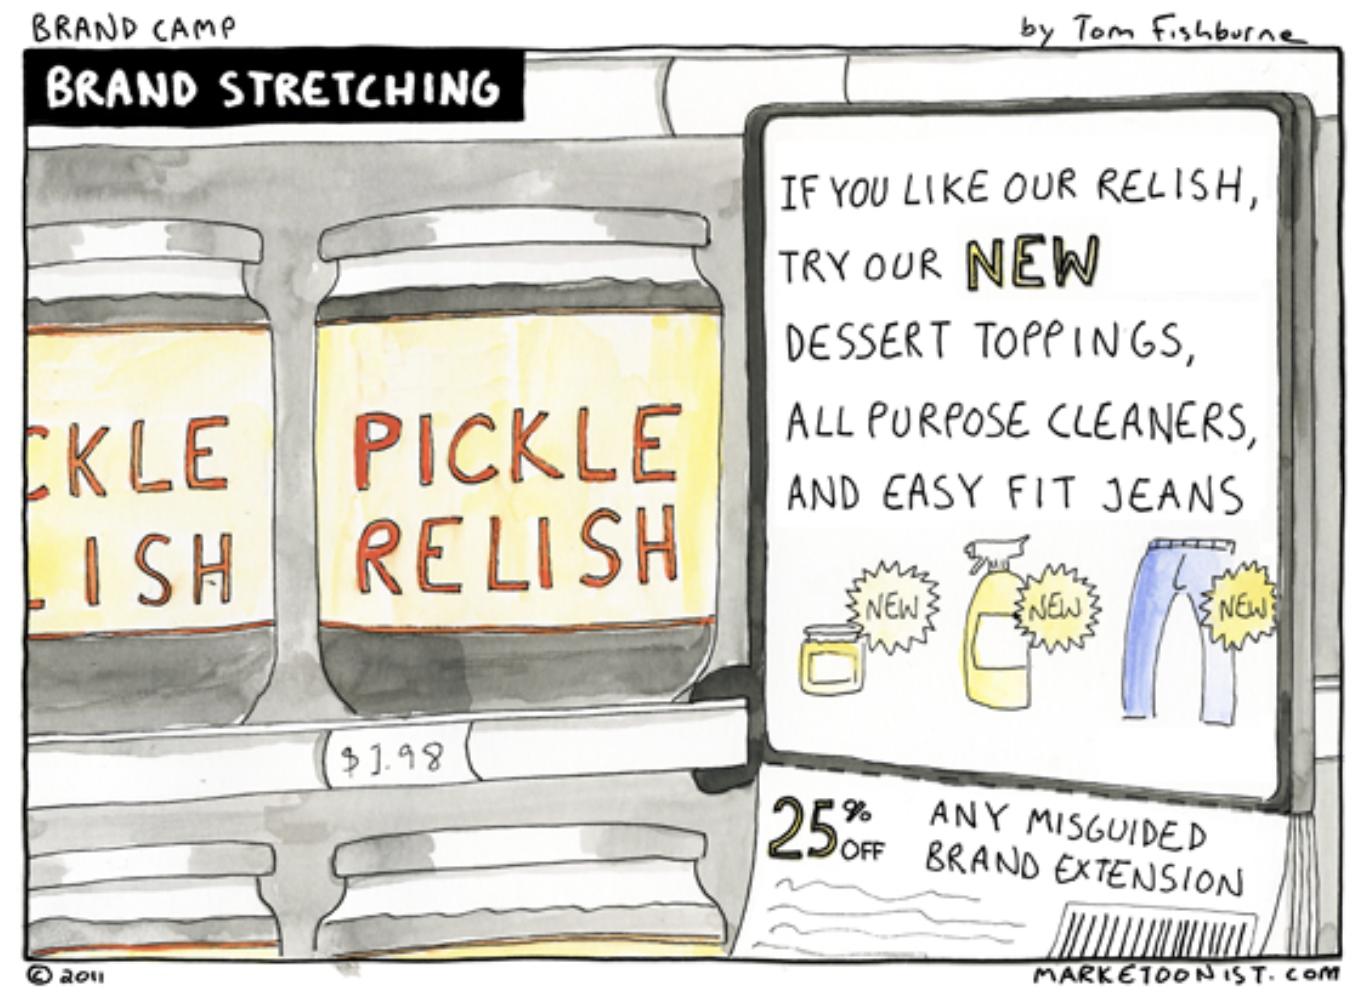 BRAND CAMP
by Tom Fishburne
BRAND STRETCHING
CKLE
LISH
PICKLE
RELISH
$1.98
IF YOU LIKE OUR RELISH,
TRY OUR NEW
DESSERT TOPPINGS,
ALL PURPOSE CLEANERS,
AND EASY FIT JEANS
NEW
NEW
NEW
25% OFF
ANY MISGUIDED
BRAND EXTENSION
© 2011
MARKETOONIST.COM